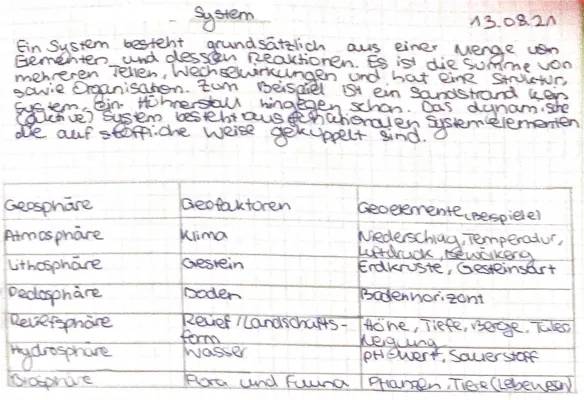 System 13.08.21
Ein System besteht grundsätzlich aus einer Menge von
Elementen und dessen Reaktionen. Es ist die Summe von
mehreren Teilen, Wechselwirkungen und hat eine Struktur,
sowie Organisation. Zum Beispiel ist ein Sandstrand kein
System, ein Hühnerstall hingegen schon. Das dynamische
(aktive) System besteht aus Systemelementen
die auf stoffliche Weise gekuppelt sind.
Geosphäre Geofaktoren Geoelemente (Beispiele)
Atmosphäre Klima Niederschlag, Temperatur,
Luftdruck,
Lithosphäre Gestein Erdkruste, Gesteinsart
Pedosphäre Boden Bodenhorizont
Reliefsphäre Relief/Landschafts- Höhe, Tiefe, Berge,
form Neigung
Hydrosphäre Wasser pH-Wert, Sauerstoff
Biosphäre Flora und Fauna Pflanzen, Tiere (Lebewesen)